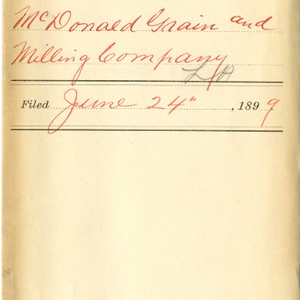 McDonald Grain and
Milling Company
LH
Filed June 24" , 1899